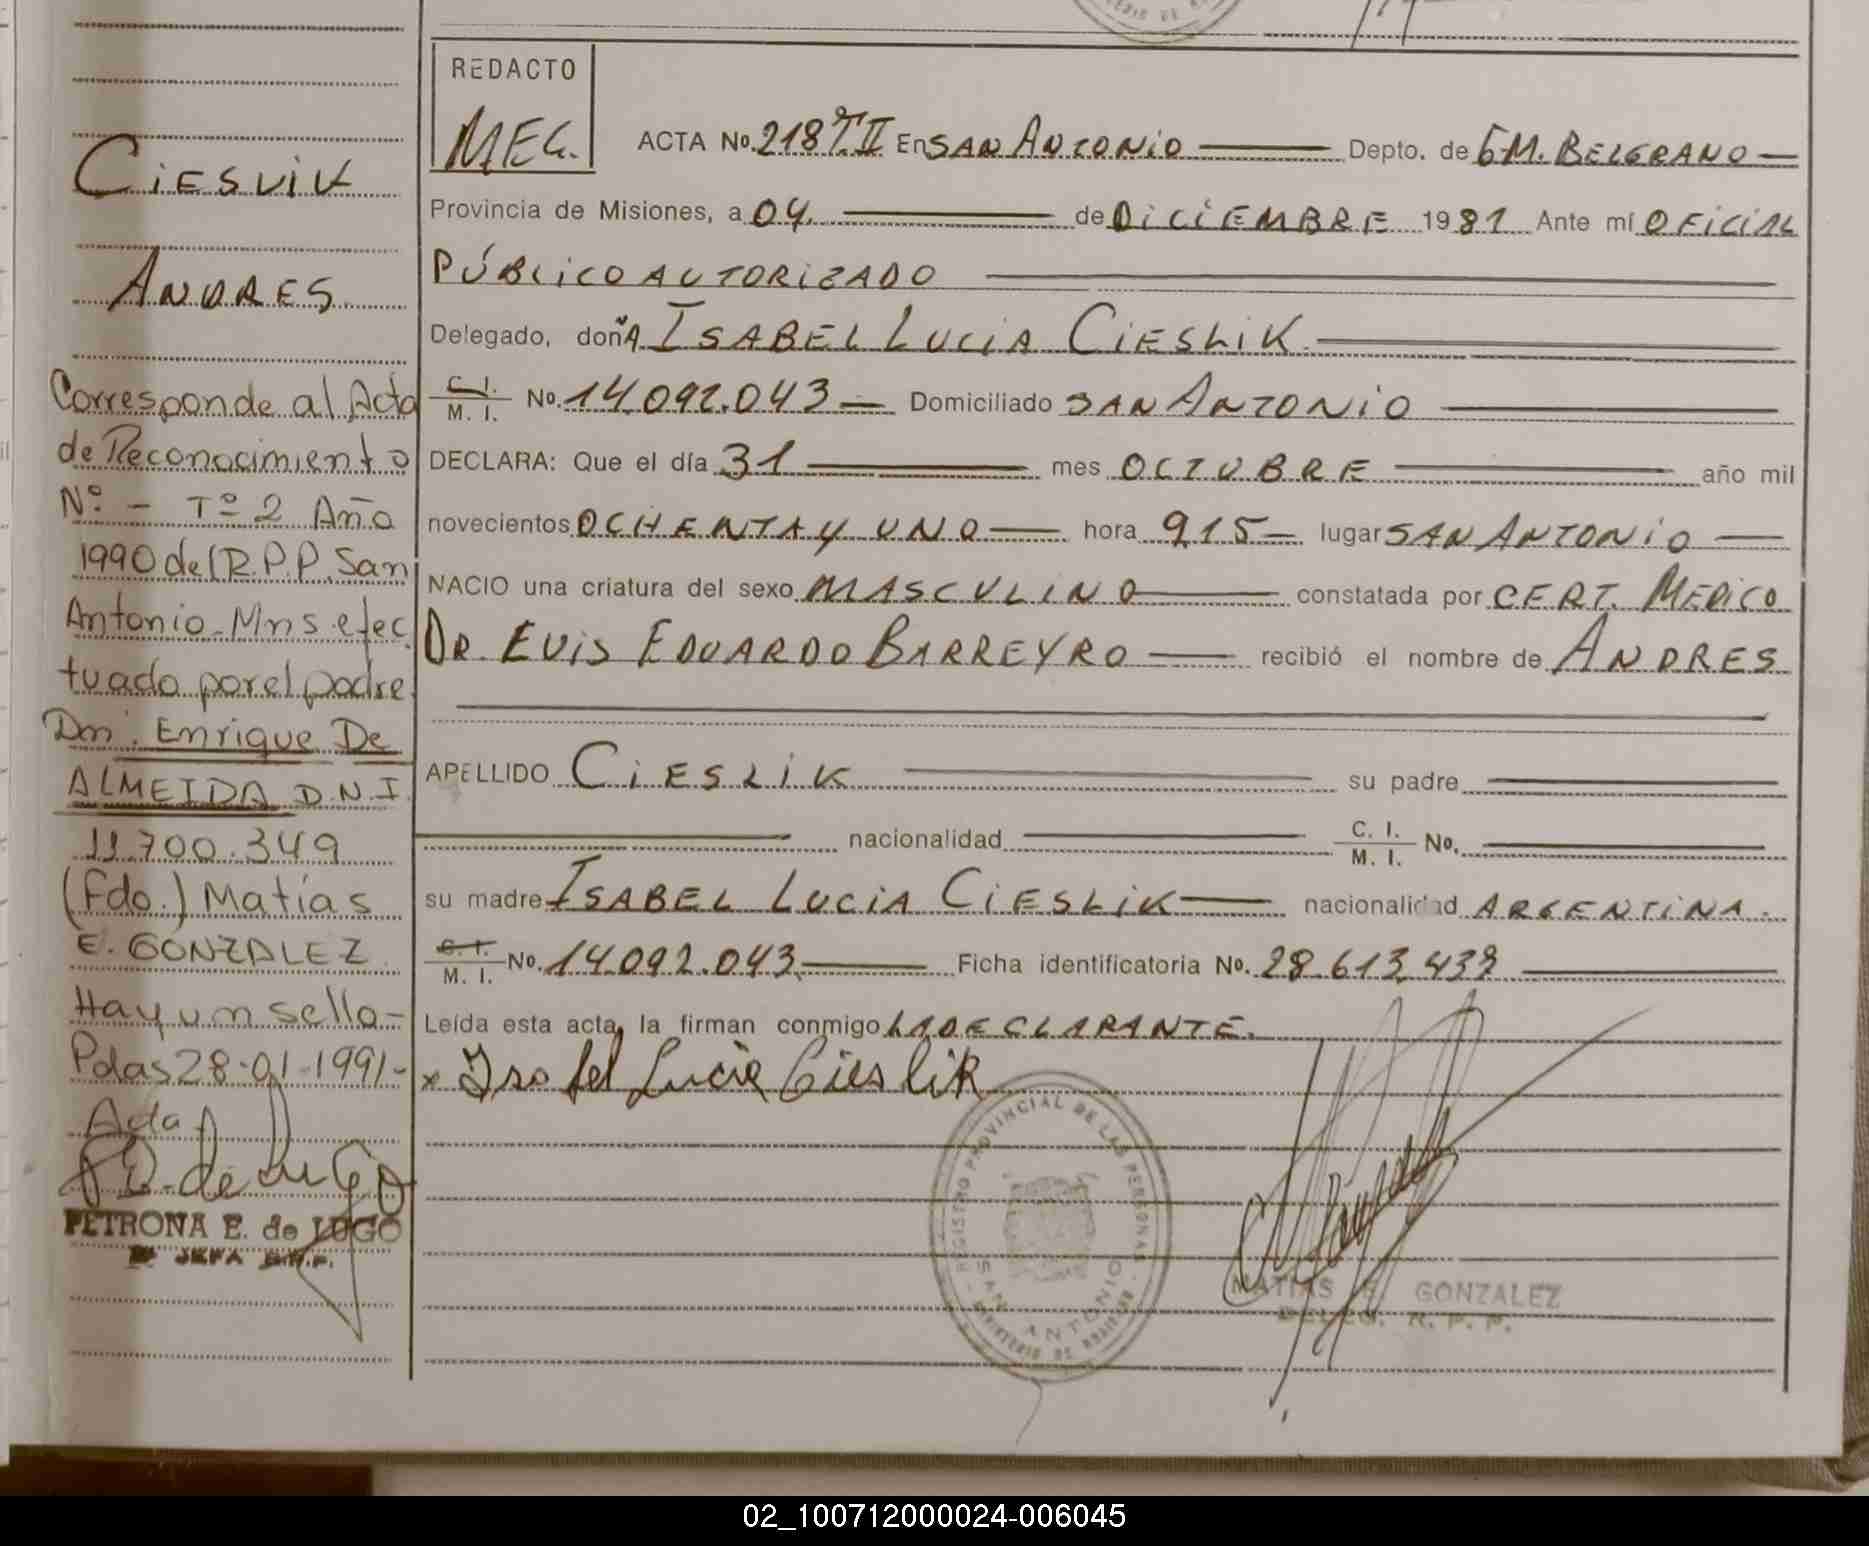 CIESLIK
ANDRES
Corresponde al Acta
de Reconocimiento
Nº - Tº 2 Año
1990 del R.P.P. San
Antonio-Mns efec
tuado por el padre
Dn. Enrique De
ALMEIDA D.N.I.
11.700.349
(Fdo.) Matías
E. GONZALEZ
Hay un sello-
Pdas 28-01-1991-
PETRONA E. de LUGO
JEFA
REDACTO
MEG.
ACTA No. 218 T.II En SAN ANTONIO Depto. de GM. BELGRANO
Provincia de Misiones, a 04 de DICIEMBRE 1981 Ante mí OFICIAL
PÚBLICO AUTORIZADO
Delegado, doñA ISABEL LUCIA CIESLIK
C. I. M. I. No. 14.092.043 Domiciliado SAN ANTONIO
DECLARA: Que el día 31 mes OCTUBRE año mil
novecientos OCHENTA Y UNO hora 9,15 lugar SAN ANTONIO
NACIO una criatura del sexo MASCULINO constatada por CERT. MEDICO
DR. LUIS EDUARDO BARREYRO recibió el nombre de ANDRES
APELLIDO CIESLIK su padre
nacionalidad C. I. M. I. No.
su madre ISABEL LUCIA CIESLIK nacionalidad ARGENTINA.
C. I. M. I. No. 14.092.043 Ficha identificatoria No. 28.613.438
Leída esta acta, la firman conmigo LA DECLARANTE.
x Isabel Lucia Cieslik
REGISTRO PROVINCIAL DE LAS PERSONAS
SAN ANTONIO
MATIAS E. GONZALEZ
R. P. P.
02_100712000024-006045